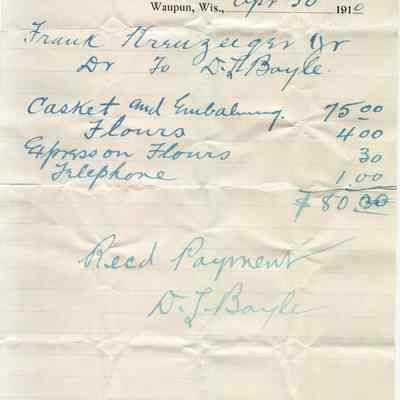 Waupun, Wis., Apr 30 1910
Frank Kreuzeiger Jr
Dr To D.L Boyle.
Casket and Embalming. 75 00
Flours 4 00
Express on Flours 30
Telephone 1.00
$ 80 30
Recd Payment
D. L. Boyle